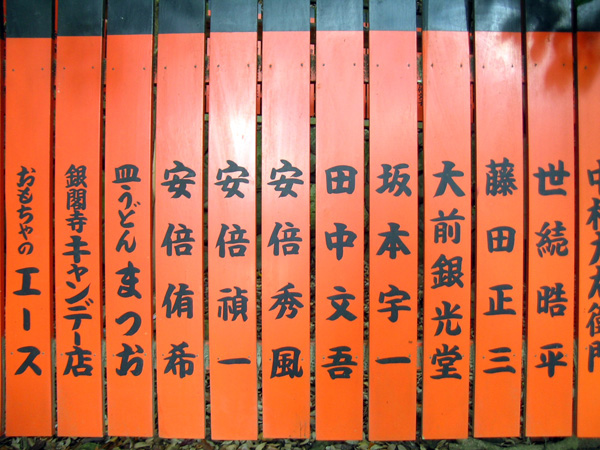 世続晧平
藤田正三
大前銀光堂
坂本宇一
田中文吾
安倍秀風
安倍禎一
安倍侑希
皿うどん まつお
銀閣寺キャンデー店
おもちゃの エース